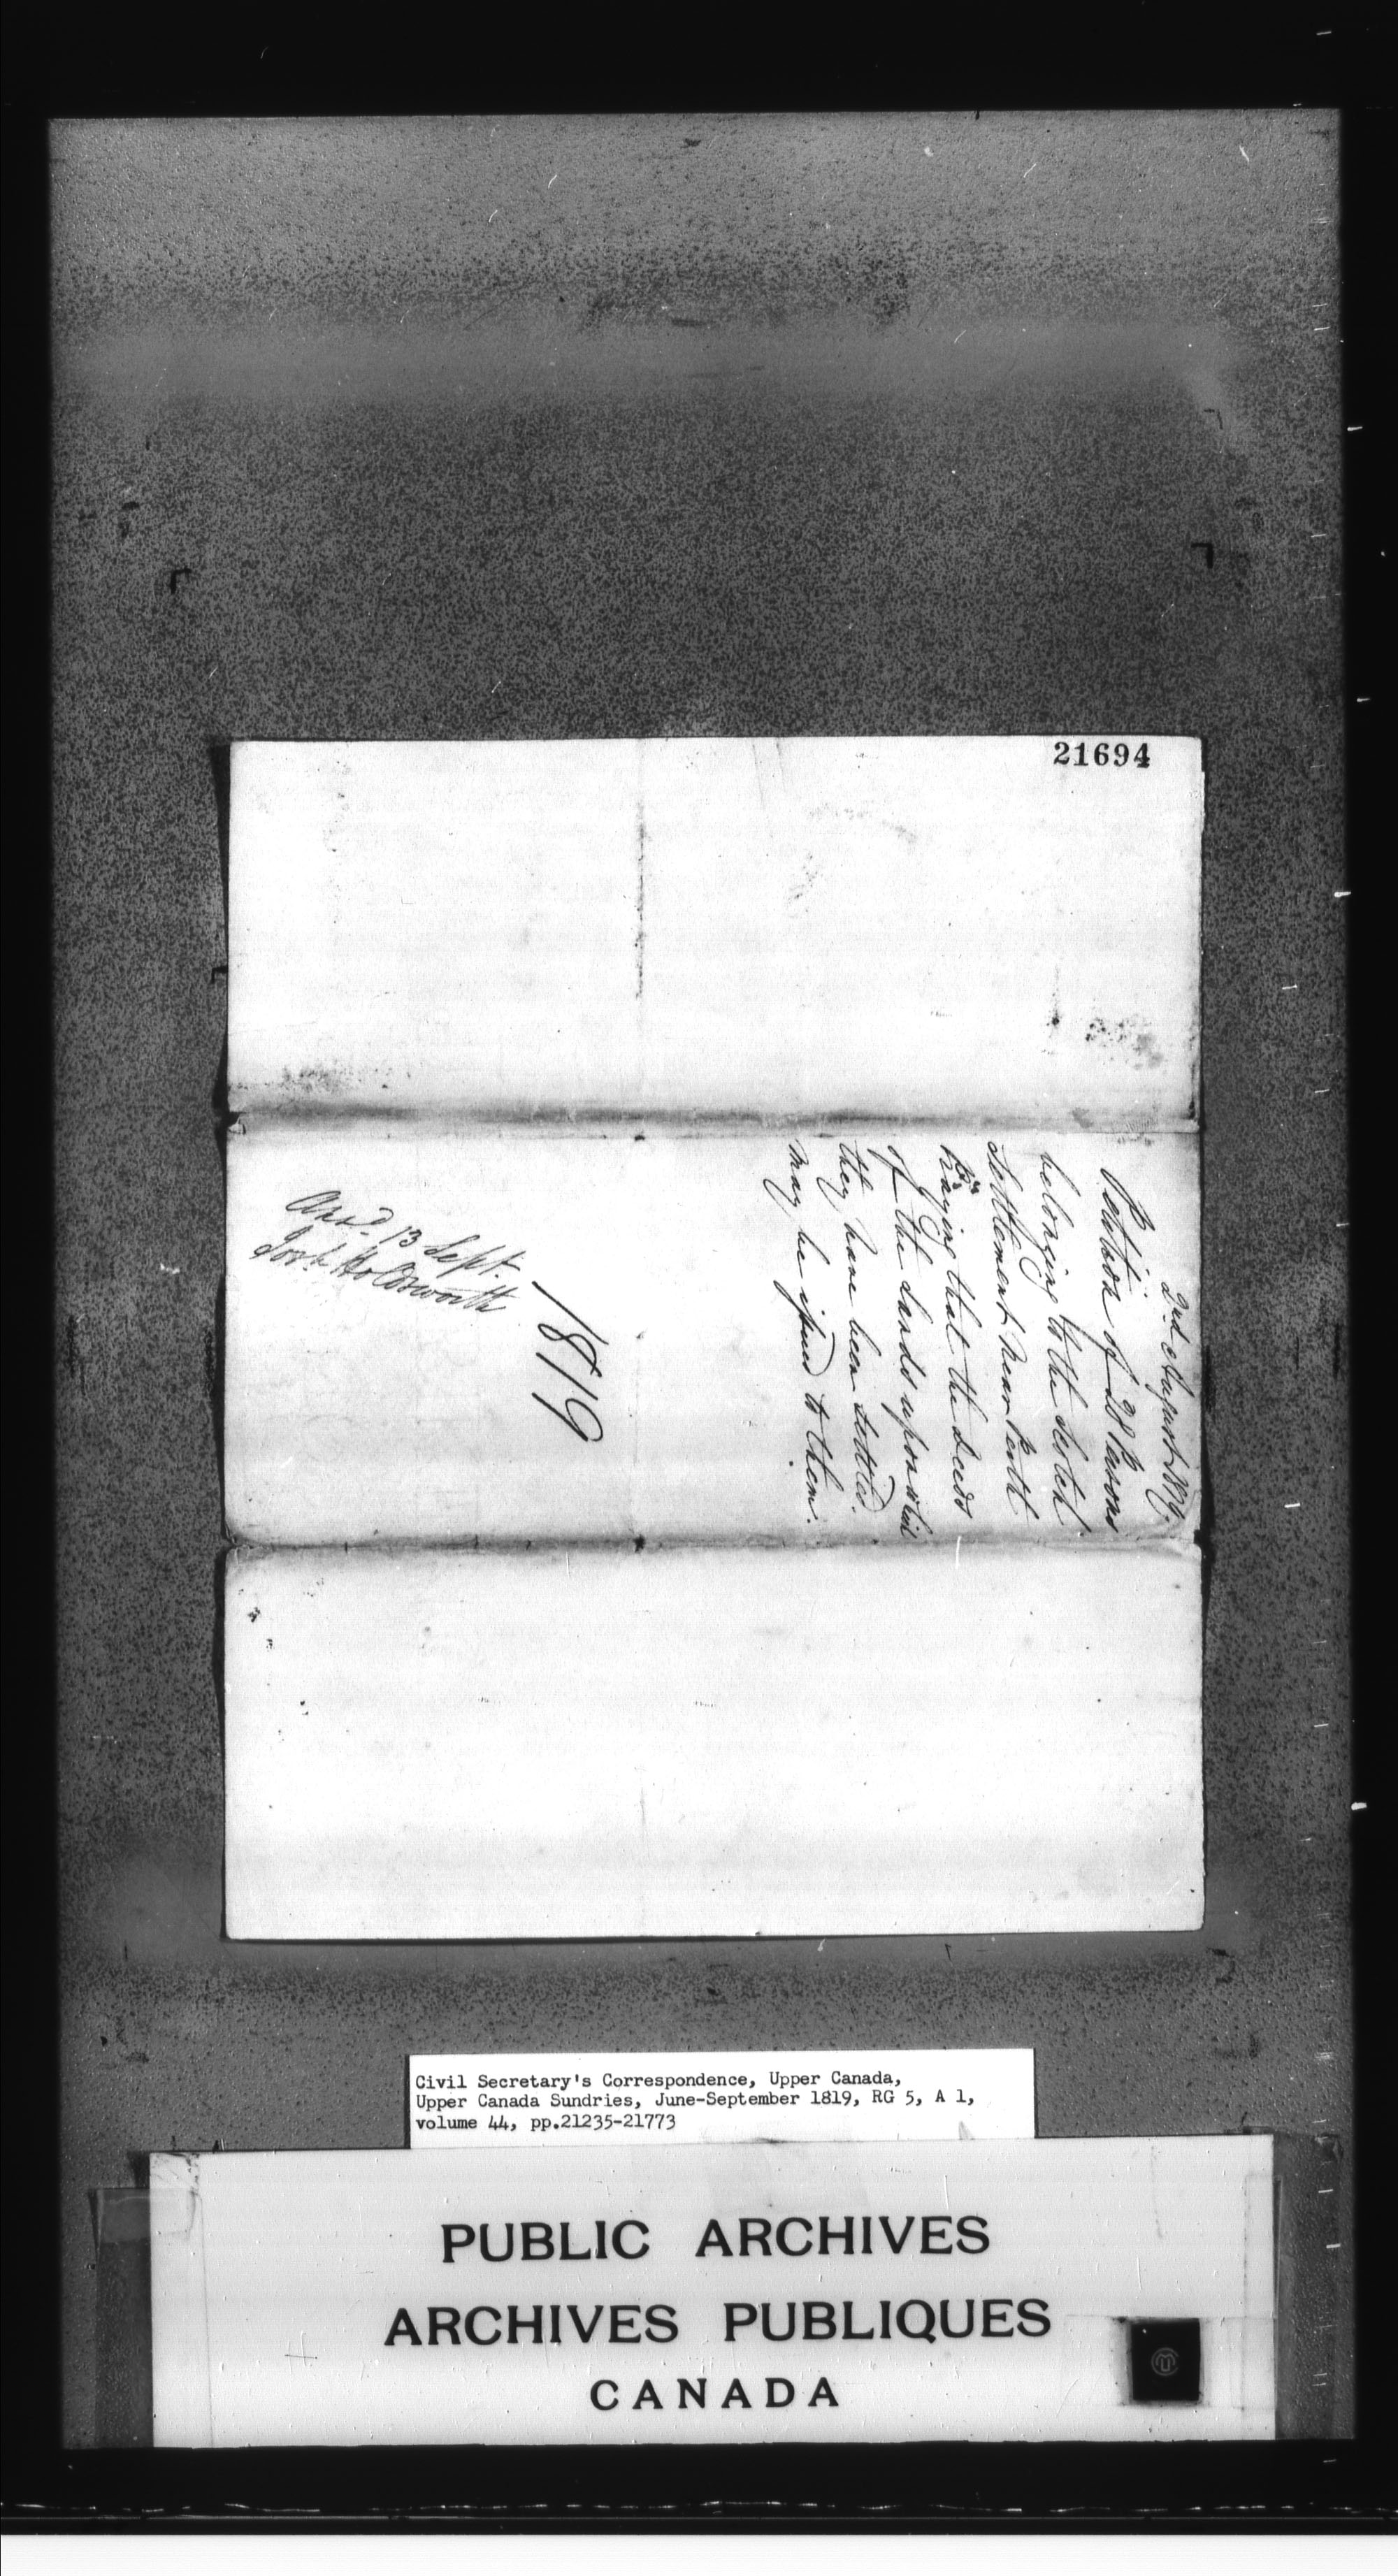 21694
2nd August 1819.
Petition of 28 Persons
belonging to the Scotch
Settlement near Perth
Praying that the Deeds
of the Lands upon which
they have been settled
may be issued to them.
1819
Ansd. 13 Sept.
Holdsworth
Civil Secretary's Correspondence, Upper Canada,
Upper Canada Sundries, June-September 1819, RG 5, A 1,
volume 44, pp.21235-21773
PUBLIC ARCHIVES
ARCHIVES PUBLIQUES
CANADA